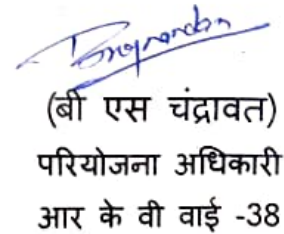 (बी एस चंद्रावत)
परियोजना अधिकारी
आर के वी वाई -38